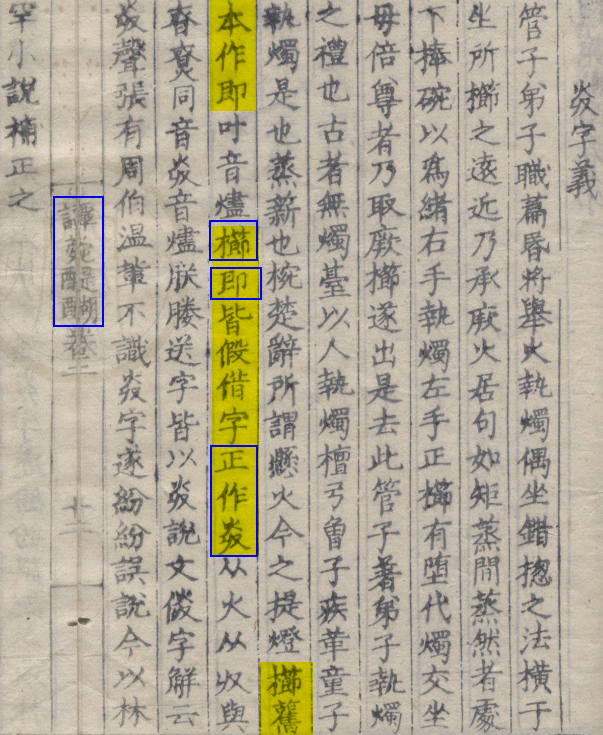 灷字義
管子弟子職篇昏將舉火執燭偶坐錯揔之法橫于
坐所櫛之遠近乃承厥火居句如矩蒸間蒸然者處
下捧碗以爲緒右手執燭左手正櫛有堕代燭交坐
毋倍尊者乃取厥櫛遂出是去此管子著弟子執燭
之禮也古者無燭臺以人執燭檀弓曾子疾革童子
執燭是也蒸薪也楚辭所謂懸火今之提燈櫛舊
本作即叶音燼櫛即皆假借字正作灷从火从収與
同音灷音燼朕勝送字皆以灷說文解云
灷聲張有周伯温輩不識灷字遂紛紛誤說今以林
罕小說補正之
譚苑醍醐卷二